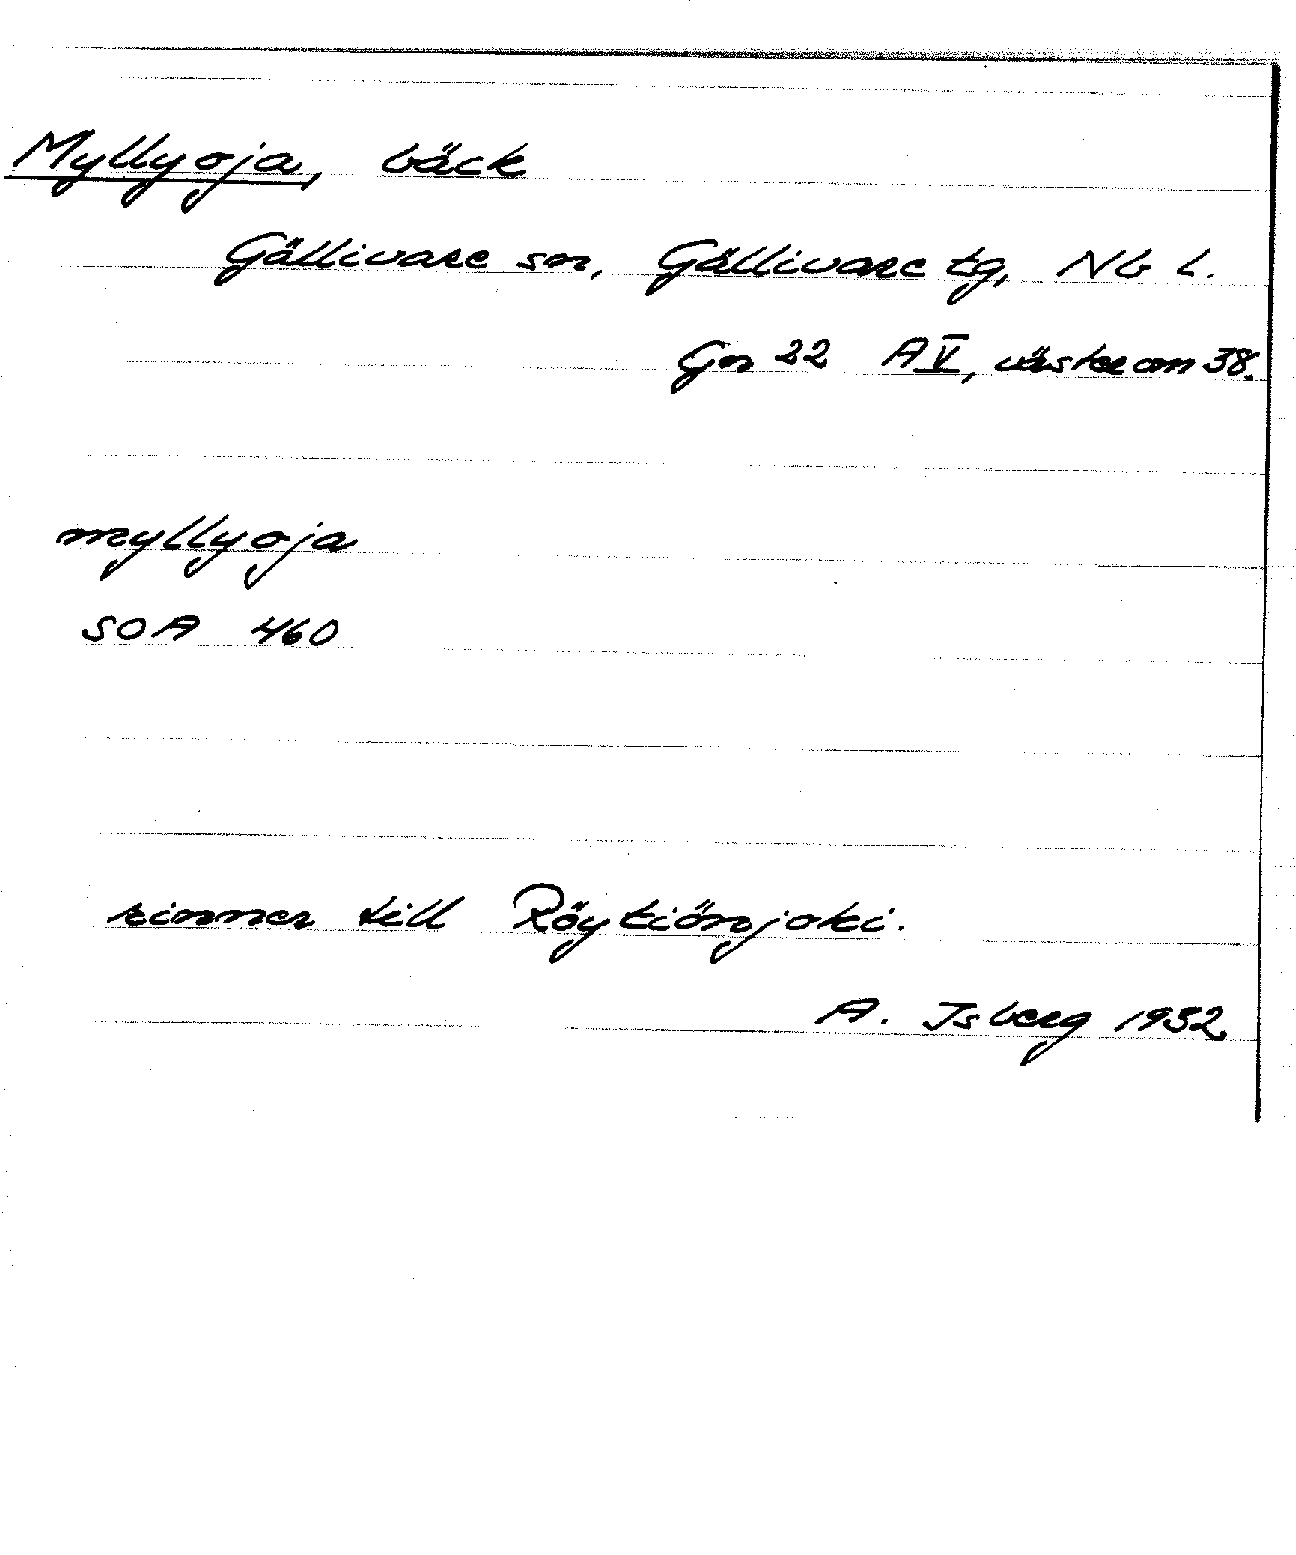 Myllyoja, bäck
Gällivare sn, Gällivare tg, Nb l.
Gn 22 A V, väster om 38.
myllyoja
SOA 460
rinner till Röytiönjoki.
A. Isberg 1952